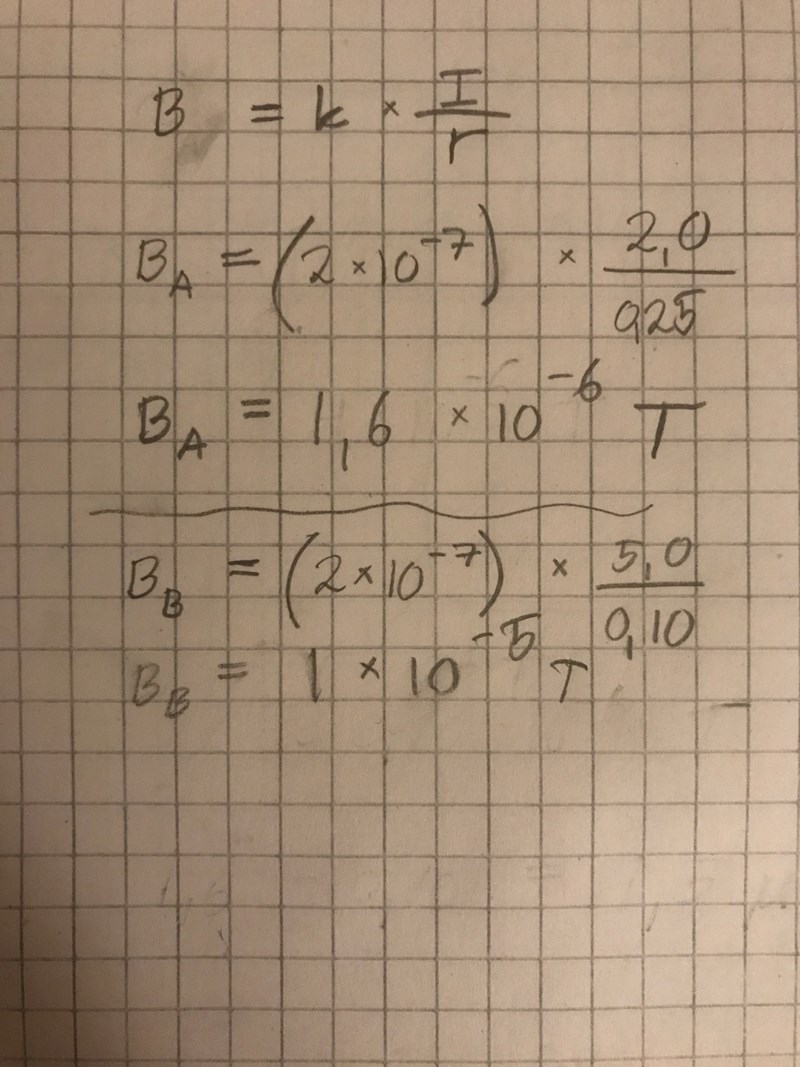 B = k × I/r
B_A = (2 × 10^-7) × 2,0/0,25
B_A = 1,6 × 10^-6 T
B_B = (2 × 10^-7) × 5,0/0,10
B_B = 1 × 10^-5 T